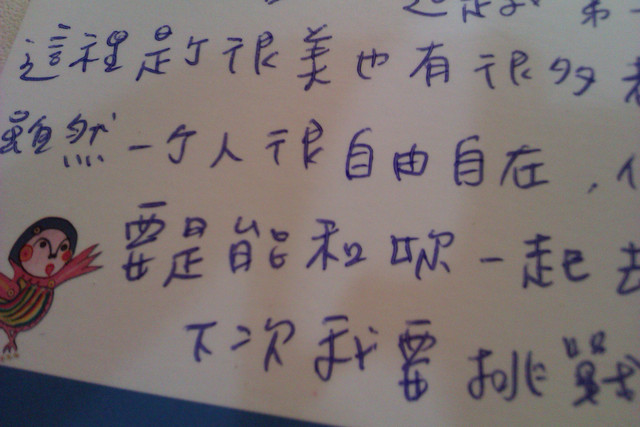 這裡是个很美也有很多
雖然一个人很自由自在，
要是能和你一起去
下次我要挑戰